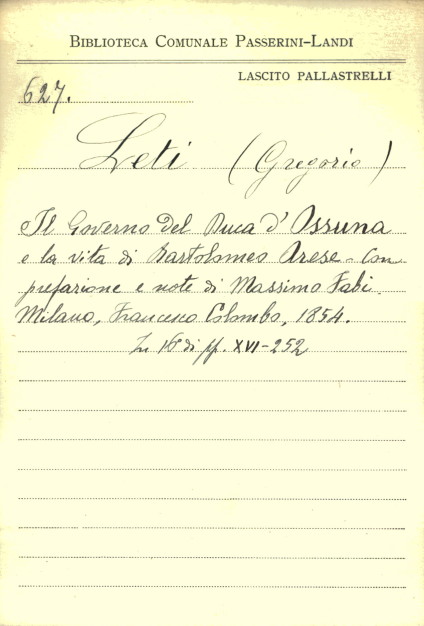 BIBLIOTECA COMUNALE PASSERINI-LANDI
LASCITO PALLASTRELLI
627.
Leti (Gregorio)
Il Governo del Duca d'Ossuna
e la vita di Bartolomeo Arese - Con
prefazione e note di Massimo Fabi.
Milano, Francesco Colombo, 1854.
In 16° di pp. XVI-252